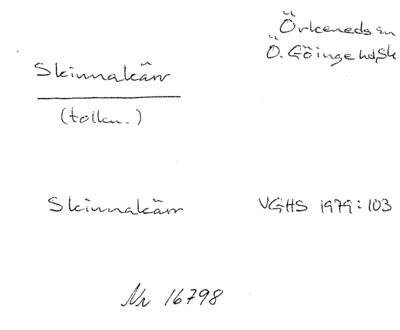 Örkeneds sn
Ö. Göinge hd, Sk
Skinnakärr
(tolkn.)
Skinnakärr VGHS 1979:103
Nr 16798